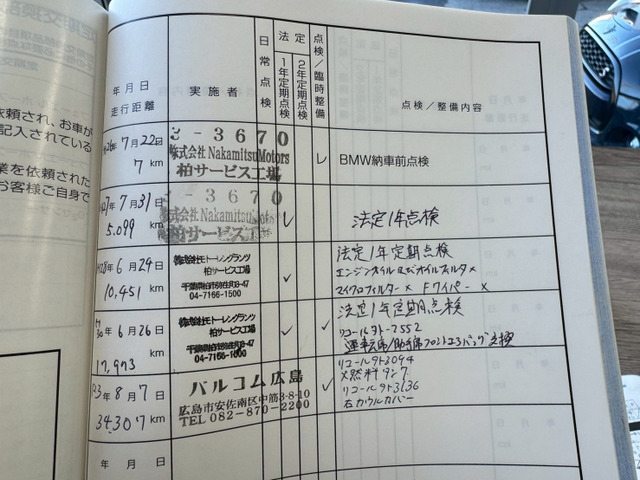 依頼され、お車が
記入されている
業を依頼された
お客様ご自身で
年月日
走行距離
実施者
日常点検
法定
1年定期点検
2年定期点検
点検/臨時整備
点検/整備内容
年7月22日
7 km
2-3670
株式会社NakamitsuMotors
柏サービス工場
レ
BMW納車前点検
27年7月31日
5,099 km
2-3670
株式会社Nakamitsu Motors
柏サービス工場
レ
法定1年点検
28年6月29日
10,451 km
株式会社モトーレングランツ
柏サービス工場
千葉県柏市弥生町8-47
04-7166-1500
レ
法定1年定期点検
エンジンオイル及びオイルフィルタ×
マイクロフィルター× Fワイパー ×
30年6月26日
17,973 km
株式会社モトーレングランツ
柏サービス工場
千葉県柏市弥生町8-47
04-7166-1500
レ
レ
法定1年定期点検
リコール外-2552
運転席/助手席フロントエアバッグ交換
3年8月7日
34,307 km
バルコム広島
広島市安佐南区中筋3-8-10
TEL 082-870-2200
レ
リコール外3094
燃料タンク
リコール外3136
右カウルカバー
年月日